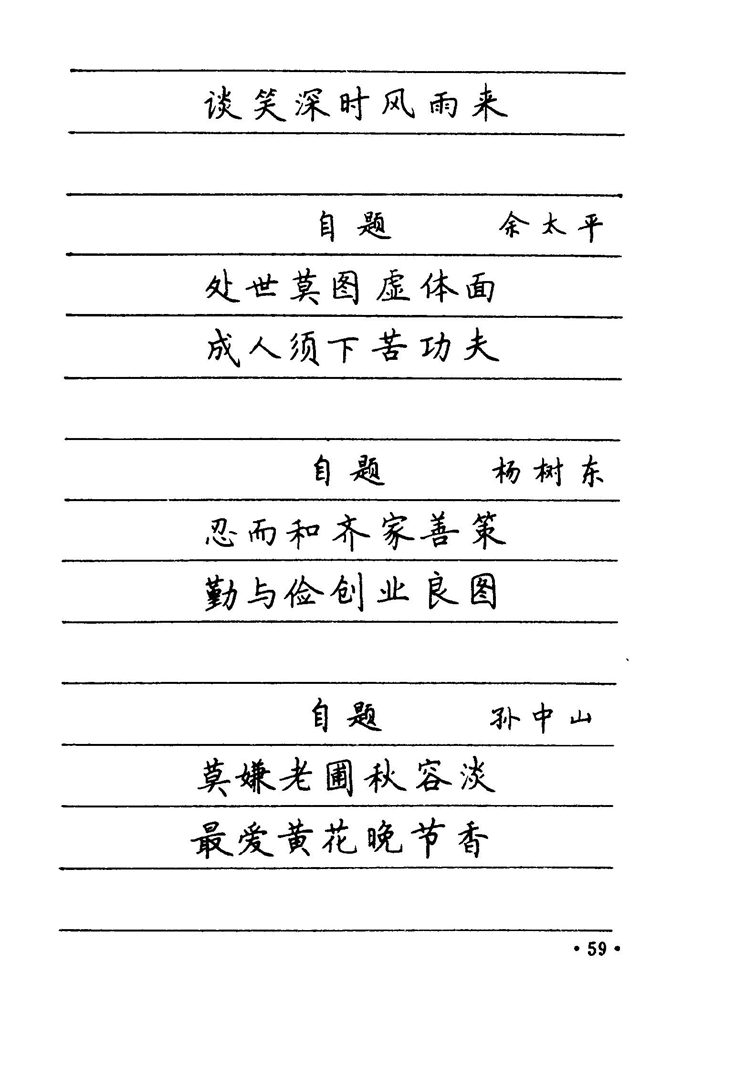 谈笑深时风雨来
自题 余太平
处世莫图虚体面
成人须下苦功夫
自题 杨树东
忍而和齐家善策
勤与俭创业良图
自题 孙中山
莫嫌老圃秋容淡
最爱黄花晚节香
·59·